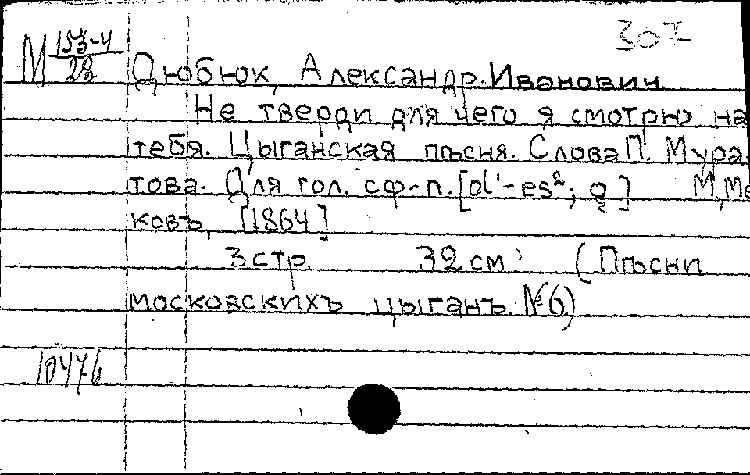 307
М 153-4
28
Дюбюк, Александр Иванович
Не тверди для чего я смотрю на
тебя. Цыганская пѣсня. Слова П. Мура
това. Для гол. с ф-п. [d1-es2; g] М, Ме
ковъ, [1864]
3 стр. 32 см. (Пѣсни
московскихъ цыганъ. №6)
10476